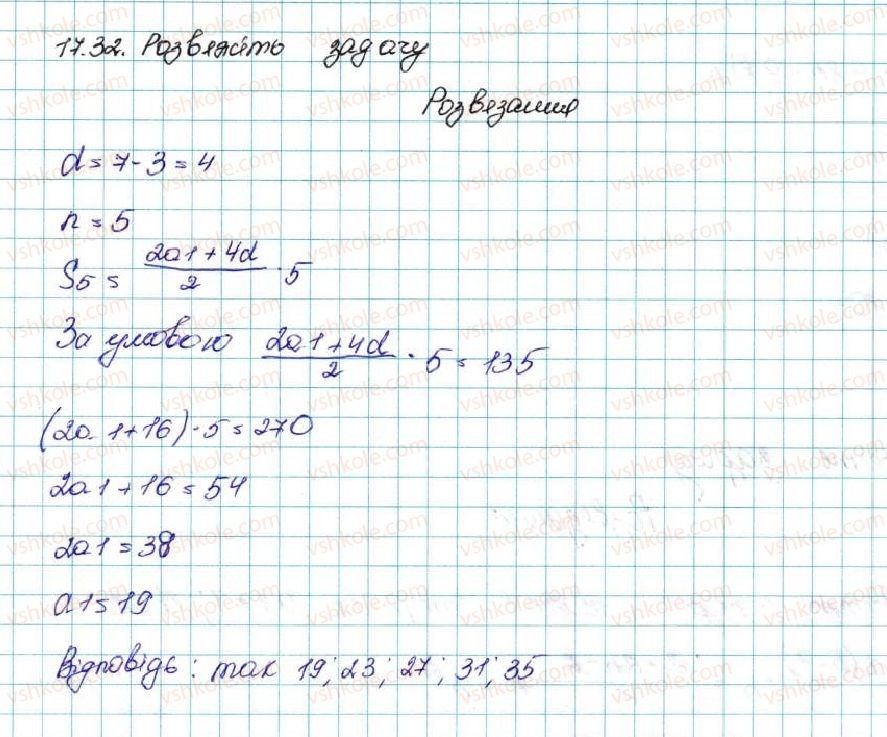 17.32. Розвяжіть задачу
Розвезание
d = 7 - 3 = 4
n = 5
S5 = (2a1 + 4d)/2 · 5
За умовою (2a1 + 4d)/2 · 5 = 135
(2a1 + 16) · 5 = 270
2a1 + 16 = 54
2a1 = 38
a1 = 19
Відповідь: так 19; 23; 27; 31; 35